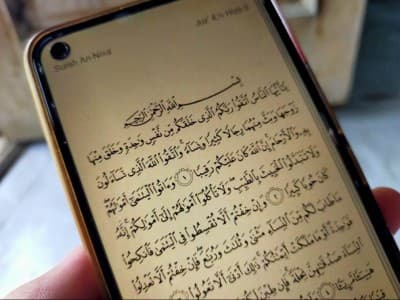 Surah An-Nisa
Hizb 8
بِسْمِ ٱللَّهِ ٱلرَّحْمَٰنِ ٱلرَّحِيمِ
يَٰٓأَيُّهَا ٱلنَّاسُ ٱتَّقُوا۟ رَبَّكُمُ ٱلَّذِى خَلَقَكُم مِّن نَّفْسٍ وَٰحِدَةٍ وَخَلَقَ مِنْهَا
زَوْجَهَا وَبَثَّ مِنْهُمَا رِجَالًا كَثِيرًا وَنِسَآءً ۚ وَٱتَّقُوا۟ ٱللَّهَ ٱلَّذِى تَسَآءَلُونَ
بِهِۦ وَٱلْأَرْحَامَ ۚ إِنَّ ٱللَّهَ كَانَ عَلَيْكُمْ رَقِيبًا ١ وَءَاتُوا۟ ٱلْيَتَٰمَىٰٓ أَمْوَٰلَهُمْ ۖ
وَلَا تَتَبَدَّلُوا۟ ٱلْخَبِيثَ بِٱلطَّيِّبِ ۖ وَلَا تَأْكُلُوٓا۟ أَمْوَٰلَهُمْ إِلَىٰٓ أَمْوَٰلِكُمْ ۚ إِنَّهُۥ
كَانَ حُوبًا كَبِيرًا ٢ وَإِنْ خِفْتُمْ أَلَّا تُقْسِطُوا۟ فِى ٱلْيَتَٰمَىٰ فَٱنكِحُوا۟
مَا طَابَ لَكُم مِّنَ ٱلنِّسَآءِ مَثْنَىٰ وَثُلَٰثَ وَرُبَٰعَ ۖ فَإِنْ خِفْتُمْ أَلَّا تَعْدِلُوا۟
فَوَٰحِدَةً أَوْ مَا مَلَكَتْ أَيْمَٰنُكُمْ ۚ ذَٰلِكَ أَدْنَىٰٓ أَلَّا تَعُولُوا۟
ٱلنِّسَآءَ صَدُقَٰتِهِنَّ نِحْلَةً ۚ فَإِن طِبْنَ
مَّرِيٓـًٔا ٤